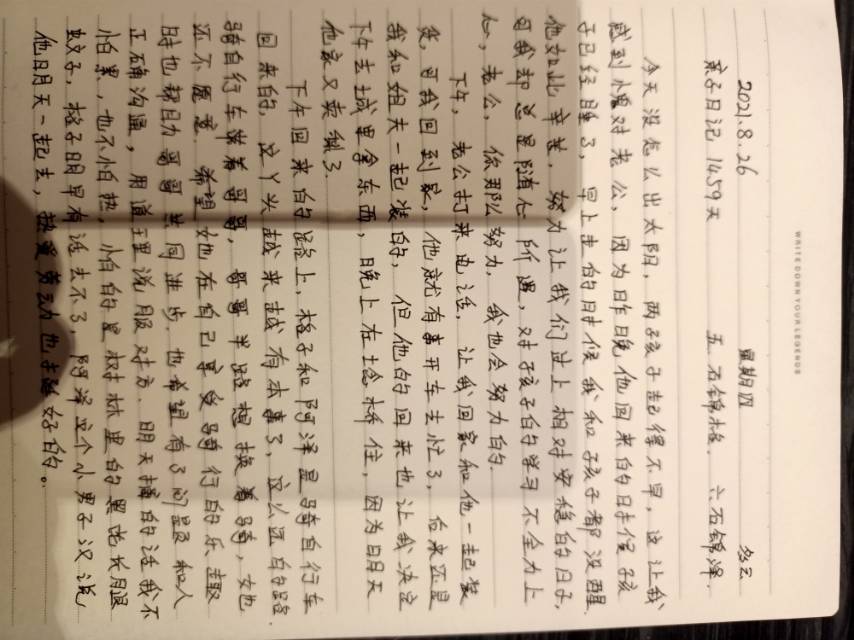 WRITE DOWN YOUR LEGENDS
2021.8.26 星期四 多云
亲子日记1459天 五石锦格. 六石锦泽.
今天没怎么出太阳，两孩子起得不早，这让我
感到愧对老公，因为昨晚他回来的时候孩
子已经睡了，早上走的时候我和孩子都没醒
他如此辛苦，努力让我们过上相对安稳的日子，
可我却总是随心所遇，对孩子的学习不全力上
心，老公，你那么努力，我也会努力的.
下午，老公打来电话，让我回家和他一起装
货，可我回到家，他就有事开车去忙了，后来还是
我和姐夫一起装的，但他的回来也让我决定
下午去城里拿东西，晚上在培桥住，因为明天
他家又卖料了.
下午回来的路上，格子和阿泽是骑自行车
回来的，这丫头越来越有本事了，这么远的路
骑自行车带着哥哥，哥哥半路想换着骑，她
还不愿意，希望她在自己享受骑行的乐趣
时也帮助哥哥共同进步，也希望有了问题和人
正确沟通，用道理说服对方，明天摘的话我不
怕累，也不怕热，怕的是树林里的黑花长腿
蚊子，格子明早有话去不了，阿泽这个小男子汉说
他明天一起去，热爱劳动他挺好的。